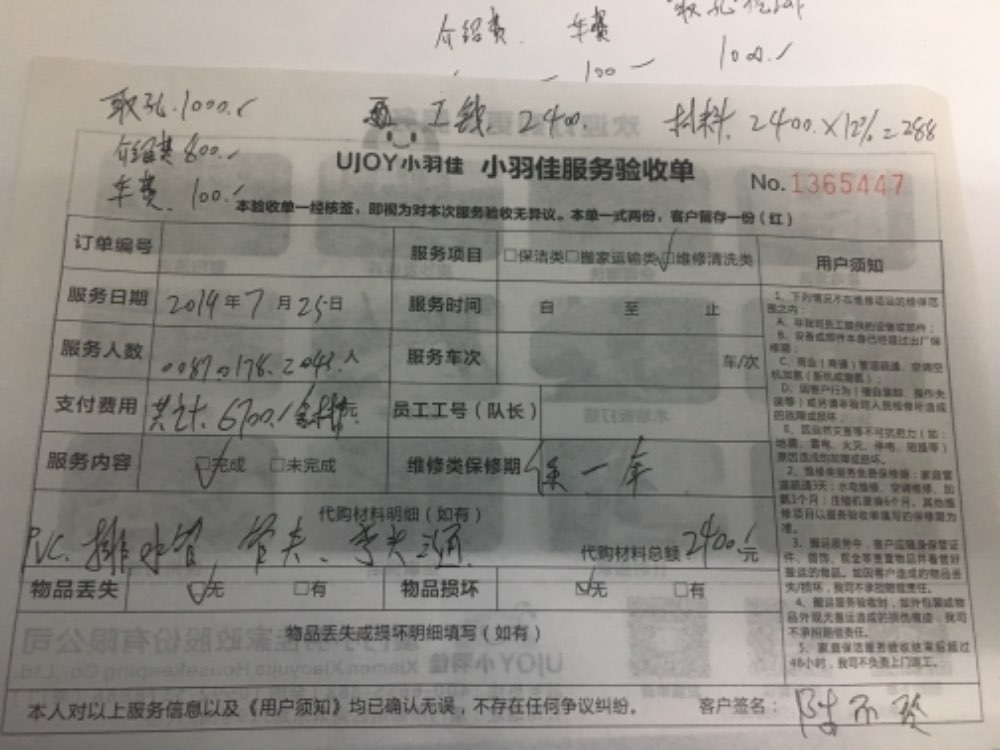 介绍费 车费
100 1000
取孔.1000. 工钱 2400. 材料. 2400.×12%=288
介绍费 800.
车费. 100.
UJOY小羽佳 小羽佳服务验收单 No.1365447
本验收单一经核签，即视为对本次服务验收无异议。本单一式两份，客户留存一份（红）
订单编号 服务项目 □保洁类□搬家运输类☑维修清洗类 用户须知
服务日期 2019年7月25日 服务时间 自 至 止
服务人数 人 服务车次 车/次
支付费用 共计. 6700. 元 员工工号（队长）
服务内容 ☑完成 □未完成 维修类保修期 保一年
代购材料明细（如有）
PVC. 排水管 管夫、弯头 三通 代购材料总额 2400.元
物品丢失 ☑无 □有 物品损坏 ☑无 □有
物品丢失或损坏明细填写（如有）
本人对以上服务信息以及《用户须知》均已确认无误，不存在任何争议纠纷。 客户签名：
1、下列情况不在维修项目的维保范围之内：
A、非我司员工提供的设备或部件；
B、设备或部件本身已经超过出厂保修期；
C、商业（商铺）管道疏通、空调空机加氟（新机或漏氟）；
D、因客户行为（擅自装卸、操作失误等）或另请非我司人员检修所造成的故障或损坏；
E、因自然灾害等不可抗拒力（如：地震、雷电、火灾、停电、阻塞等）原因造成的故障或损坏。
2、维修类服务免费保修期：家庭管道疏通3天；水电维修、空调维修、加氟1个月；压缩机更换6个月。其他维修项目以服务验收单填写的保修期为准。
3、搬运服务中，客户应随身保管证件、首饰、现金等贵重物品并看管好搬运的物品。如因客户造成的物品丢失/损坏，我司不承担赔偿责任。
4、搬运服务验收时，如外包装或物品外观无搬运造成的损伤痕迹，我司不承担赔偿责任。
5、家庭保洁服务验收结束后超过48小时，我司不负责上门返工。